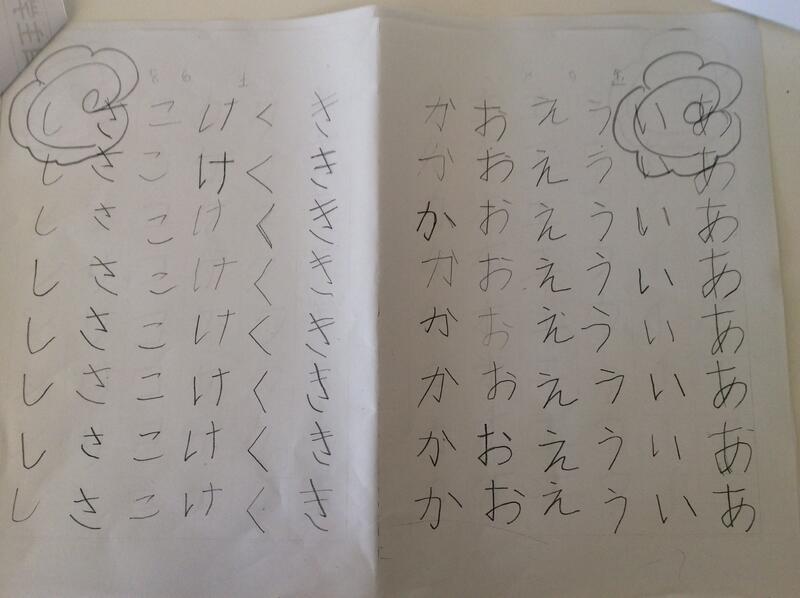 ああああああああ
いいいいいいいい
うううううううう
ええええええええ
おおおおおおおお
かかかかかかかか
きききききききき
くくくくくくくく
けけけけけけけけ
ここここここここ
ささささささささ
しししししししし